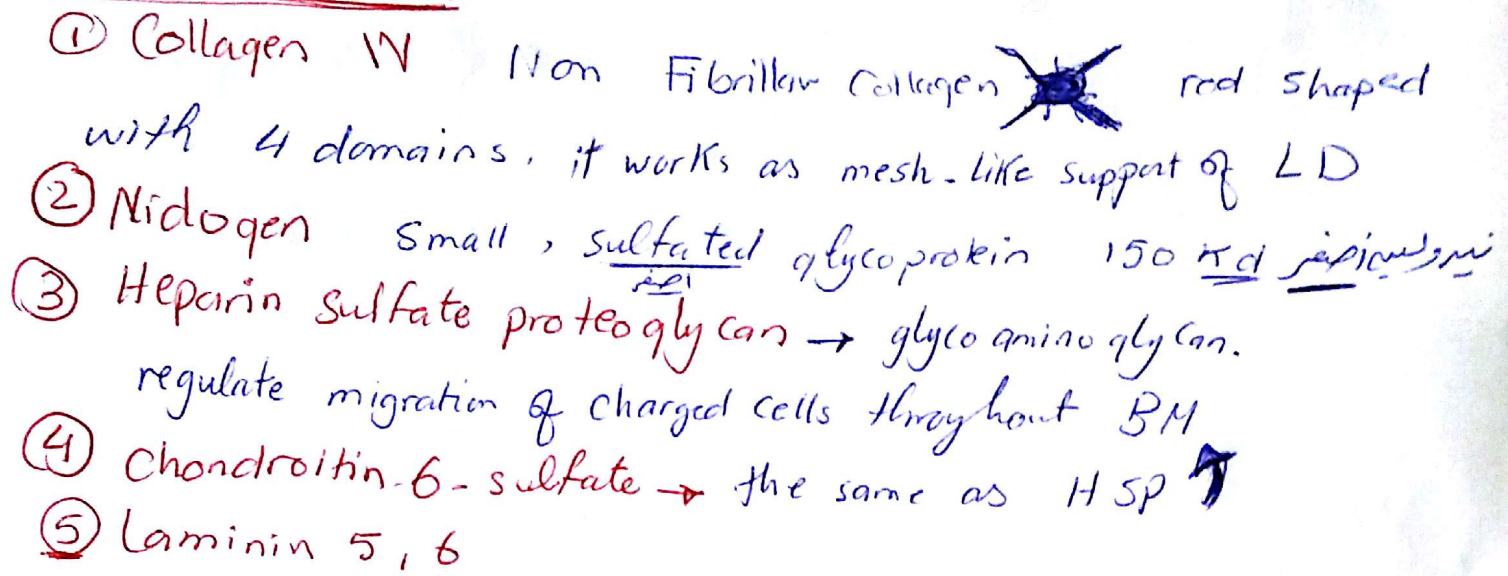 ① Collagen IV Non Fibrillar Collagen rod shaped
with 4 domains, it works as mesh-like support of LD
② Nidogen Small, sulfated glycoprotein 150 Kd
اصفر
③ Heparin sulfate proteoglycan → glycoaminoglycan.
regulate migration of charged cells throughout BM
④ Chondroitin-6-sulfate → the same as HSP ↑
⑤ Laminin 5, 6